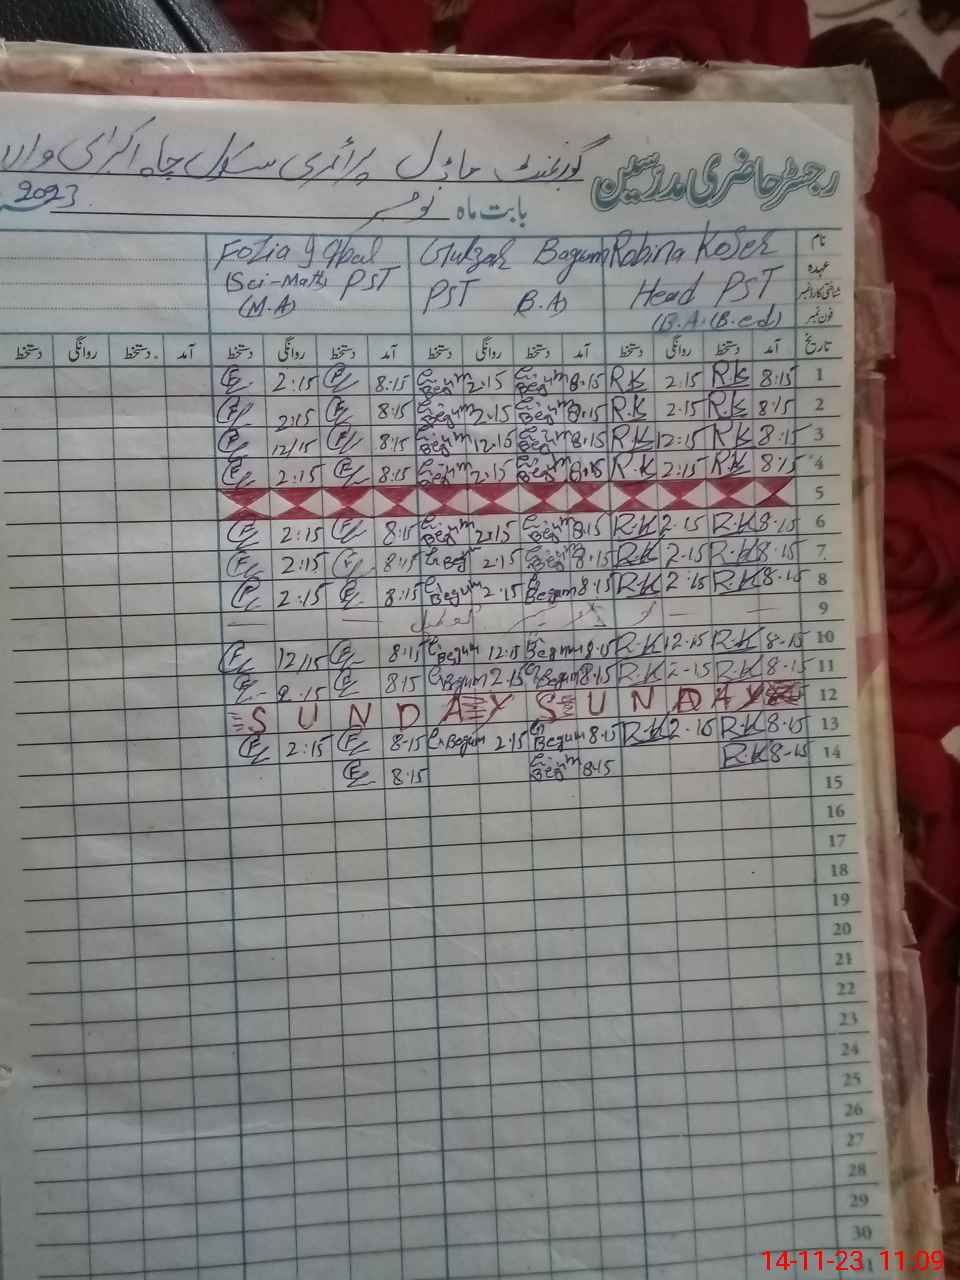 رجسٹر حاضری مدرسین گورنمنٹ ماڈل پرائمری سکول چاہ
بابت ماہ نومبر 2023
نام Robina Koser Gulzar Begum Fozia Iqbal
عہدہ Head PST PST B.A) (Sci-Math) PST
شناختی کارڈ نمبر (M.A)
فون نمبر (B.A.(B.ed)
تاریخ آمد دستخط روانگی دستخط آمد دستخط روانگی دستخط آمد دستخط روانگی دستخط آمد دستخط روانگی دستخط
1 8:15 R.K 2:15 R.K 8:15 G. Begum 2:15 G. Begum 8:15 2:15
2 8:15 R.K 2:15 R.K 8:15 G. Begum 2:15 G. Begum 8:15 2:15
3 8:15 R.K 12:15 R.K 8:15 G. Begum 12:15 G. Begum 8:15 12/15
4 8:15 R.K 2:15 R.K 8:15 G. Begum 2:15 G. Begum 8:15 2:15
5
6 8:15 R.K 2:15 R.K 8:15 G. Begum 2:15 G. Begum 8:15 2:15
7 8:15 R.K 2:15 R.K 8:15 G. Begum 2:15 G. Beg 8:15 2:15
8 8:15 R.K 2:15 R.K 8:15 G. Begum 2:15 G. Begum 8:15 2:15
9 تعطیل
10 8:15 R.K 12:15 R.K 8:15 G. Begum 12:15 G. Begum 8:15 12/15
11 8:15 R.K 2:15 R.K 8:15 G. Begum 2:15 G. Begum 8:15 2:15
12 SUNDAY SUNDAY
13 8:15 R.K 2:15 R.K 8:15 G. Begum 2:15 G. Begum 8:15 2:15
14 8:15 R.K 8:15 G. Begum 8:15
15
16
17
18
19
20
21
22
23
24
25
26
27
28
29
30
14-11-23 11:09